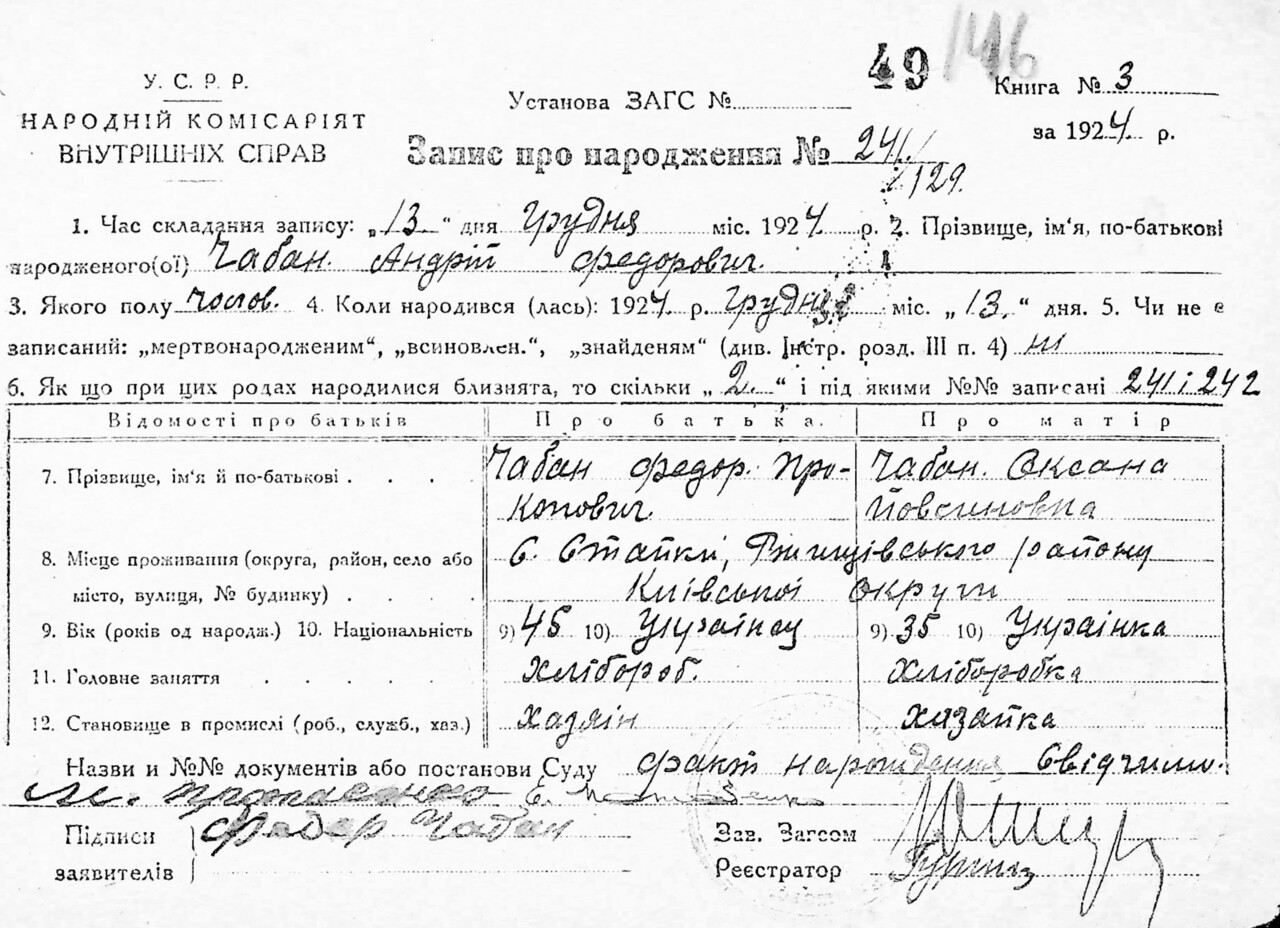 49 146
У. С. Р. Р.
НАРОДНІЙ КОМІСАРІЯТ
ВНУТРІШНІХ СПРАВ
Установа ЗАГС №
Книга № 3
за 1924 р.
Запис про народження № 241/
129.
1. Час складання запису: „13“ дня Грудня міс. 1924 р. 2. Прізвище, ім‘я, по-батькові
народженого(ої) Чабан Андрій Федорович.
3. Якого полу чолов. 4. Коли народився (лась): 1924 р. Грудня міс. „13.“ дня. 5. Чи не є
записаний: „мертвонародженим“, „всиновлен.“, „знайденям“ (див. Інстр. розд. III п. 4) ні
6. Як що при цих родах народилися близнята, то скільки „2.“ і під якими №№ записані 241 і 242
Відомості про батьків Про батька. Про матір
7. Прізвище, ім‘я й по-батькові . . . . Чабан Федор Про- Чабан. Оксана
копович.
8. Місце проживання (округа, район, село або С. Стайки, Ржищівського району
місто, вулиця, № будинку) . . . . Київської Округи
9. Вік (років од народж.) 10. Національність 9) 45 10) Українец 9) 35 10) Українка
11. Головне заняття . . . . . Хлібороб. Хліборобка
12. Становище в промислі (роб., служб., хаз.) Хазяін Хазайка
Назви и №№ документів або постанови Суду факт народження Свідчили.
Підписи
заявителів
Федер Чабан
Зав. Загсом
Реєстратор